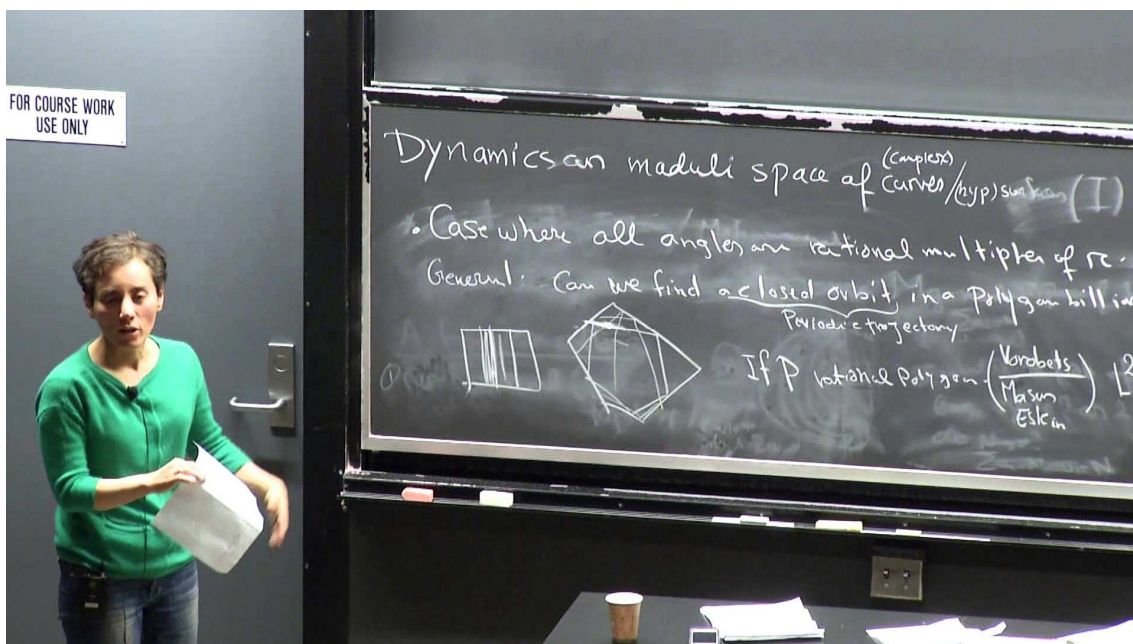 FOR COURSE WORK
USE ONLY
Dynamics on moduli space of (complex) curves/(hyp) surfaces (I)
• Case where all angles are rational multiples of π.
General: Can we find a closed orbit in a polygon
Periodic trajectory
If P rational polygon (Vorobets
Masur
Eskin) L²